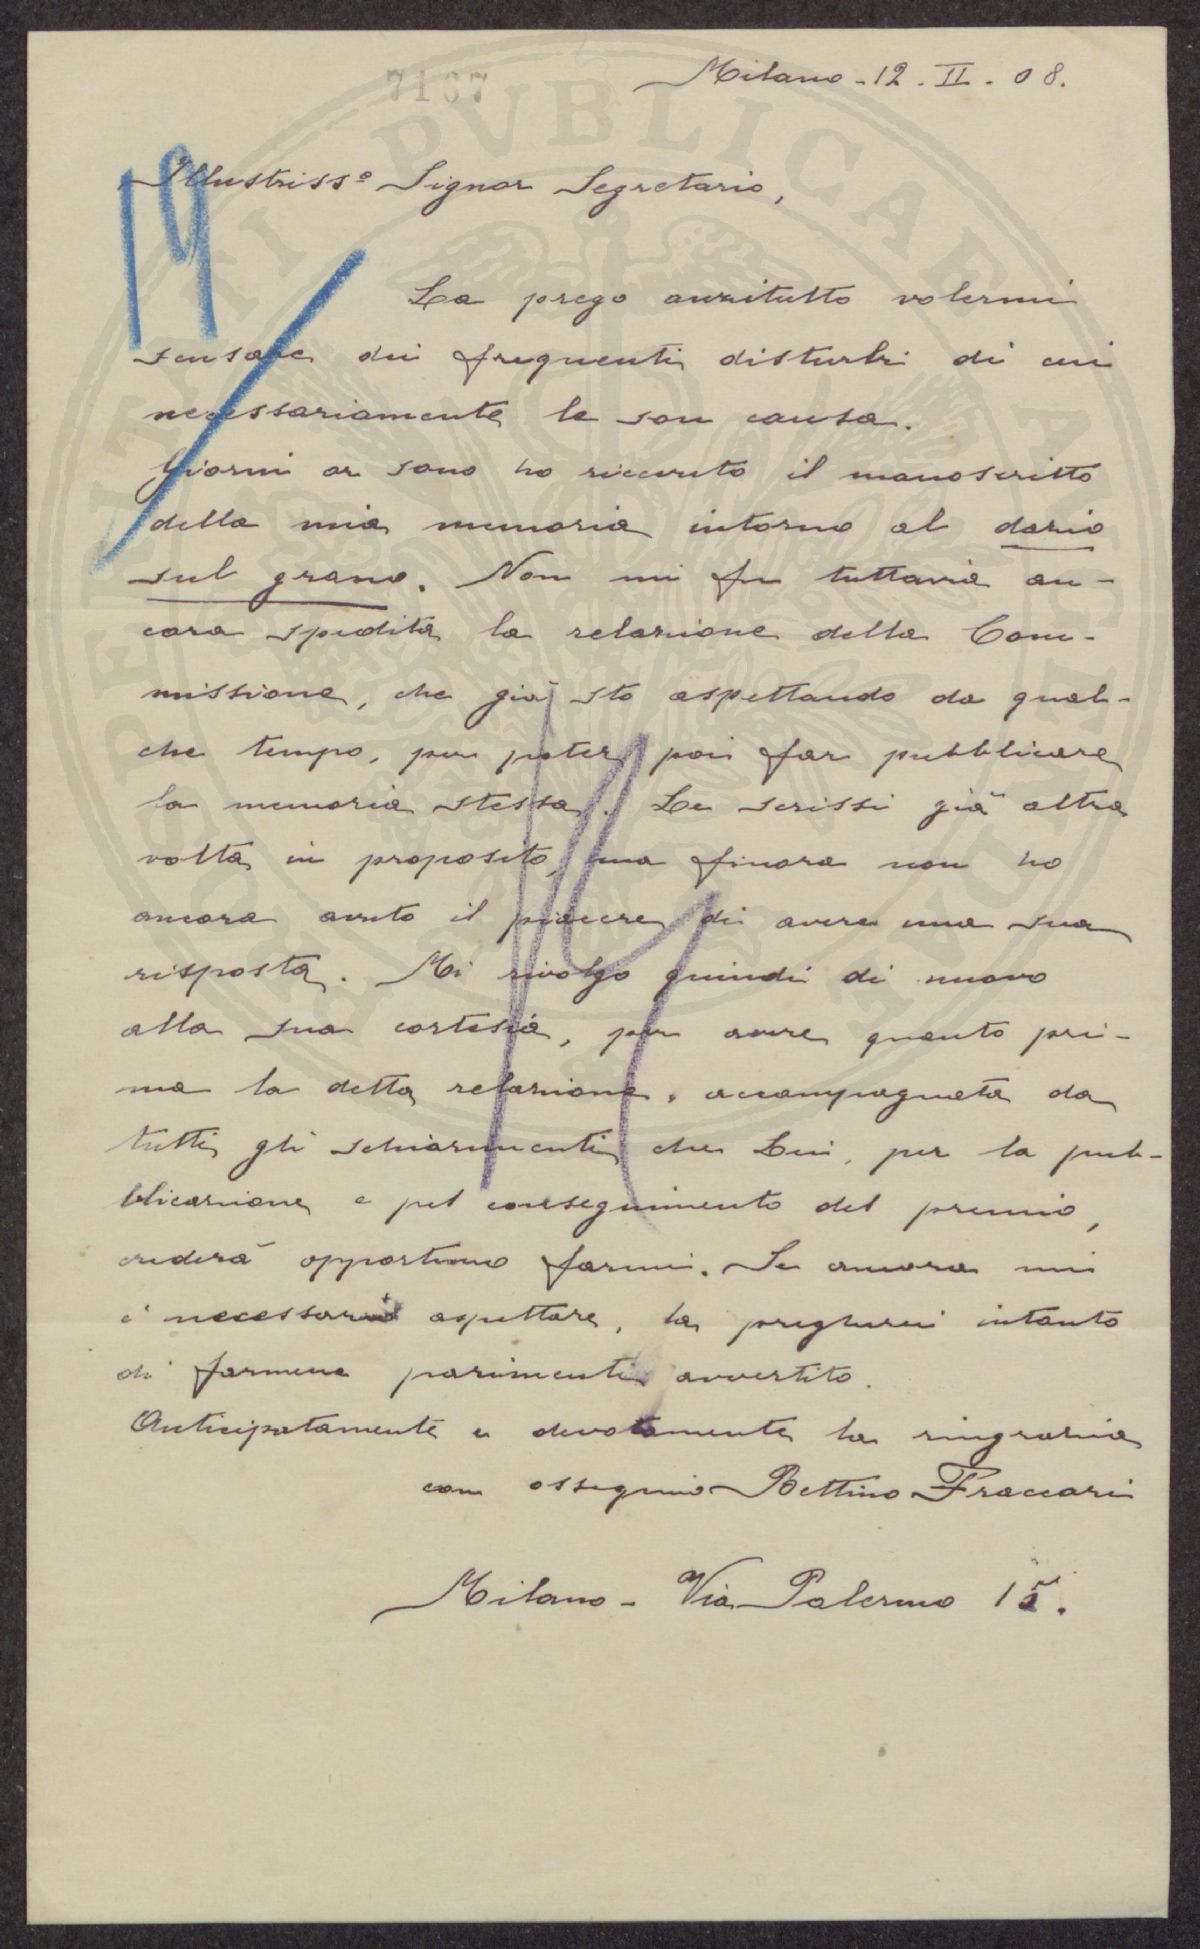 7167
Milano - 12 . II . 08.
19
Illustriss.o Signor Segretario,
La prego anzitutto volermi
scusare dei frequenti disturbi di cui
necessariamente le son causa.
Giorni or sono ho ricevuto il manoscritto
della mia memoria intorno al dazio
sul grano. Non mi fu tuttavia an-
cora spedita la relazione della Com-
missione, che già sto aspettando da qual-
che tempo, per poter poi far pubblicare
la memoria stessa. Le scrissi già altra
volta in proposito, ma finora non ho
ancora avuto il piacere di avere una sua
risposta. Mi rivolgo quindi di nuovo
alla sua cortesia, per avere quanto pri-
ma la detta relazione, accompagnata da
tutti gli schiarimenti che Lei, per la pub-
blicazione e pel conseguimento del premio,
crederà opportuno farmi. Se ancora mi
è necessario aspettare, la pregherei intanto
di farmene parimenti avvertito.
Anticipatamente e devotamente la ringrazia
con ossequio Bettino Fraccari
Milano - Via Palermo 15.